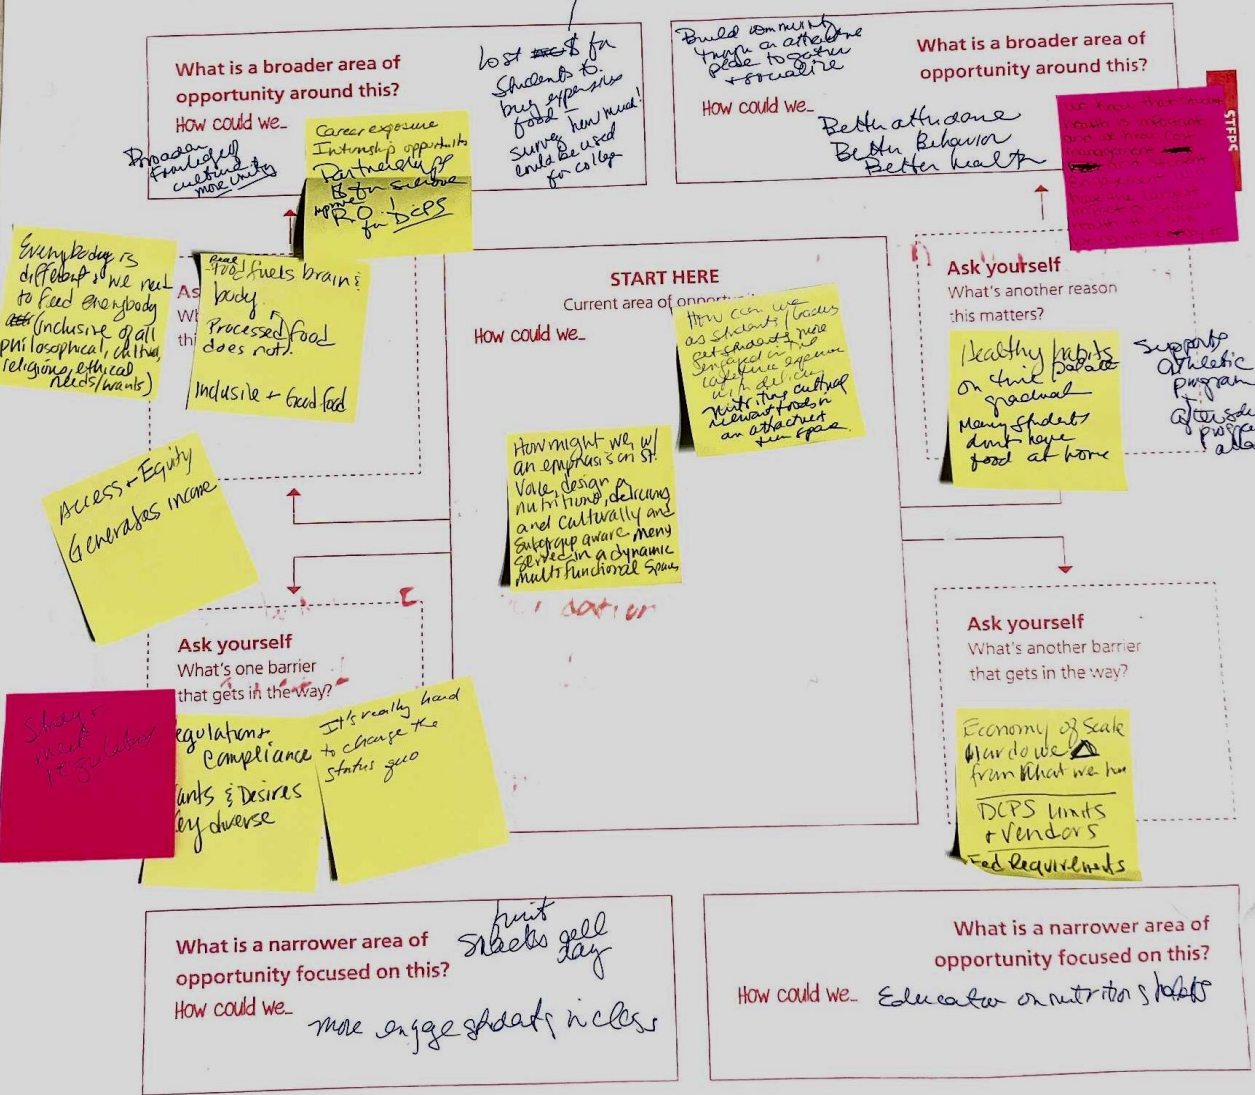 What is a broader area of
opportunity around this?
How could we...
Broaden
knowledge of
cultures
more unity
Lost $ for
Students to
buy expensive
food –
survey how much!
could be used
for college
Career exposure
Internship opportunits
Partnership
for
improve
R.O.I
for DCPS
Build community
through an attractive
place to gather
+ socialize
What is a broader area of
opportunity around this?
How could we...
Better attendance
Better Behavior
Better health
STEPS
we know that student
health is important
and
management
student
Engagement will
have the largest
impact on
health
Everybody is
different & we need
to feed everybody
(inclusive of all
philosophical, cultural,
religious, ethical
needs/wants)
Real
food fuels brain &
body.
Processed food
does not).
Inclusive + Good food
As
Wh
thi
START HERE
Current area of opportu
How could we...
How can we
as students/
get students more
engaged in the
cafeteria experience
with delicious
nutritious cultural
relevant foods in
an attractive
fun space
How might we, w/
an emphasis on St.
Voice, design a
nutritional, delicious
and culturally and
subgroup aware menu
served in a dynamic
multifunctional space
Ask yourself
What's another reason
this matters?
Healthy habits
on time palate
gradual
Many students
dont have
food at home
Supports
athletic
program
+
afterschool
program
Access + Equity
Generates income
Ask yourself
What's one barrier
that gets in the way?
Study +
meet
regulations
egulations
Compliance
ants & Desires
ery diverse
It's really hard
to change the
status quo
Ask yourself
What's another barrier
that gets in the way?
Economy of Scale
Hard to we Δ
from what we have
DCPS limits
+ vendors
Fed Requirements
What is a narrower area of
opportunity focused on this?
How could we...
fruit
Snacks all
day
more engage students in class
What is a narrower area of
opportunity focused on this?
How could we...
Education on nutrition & habits